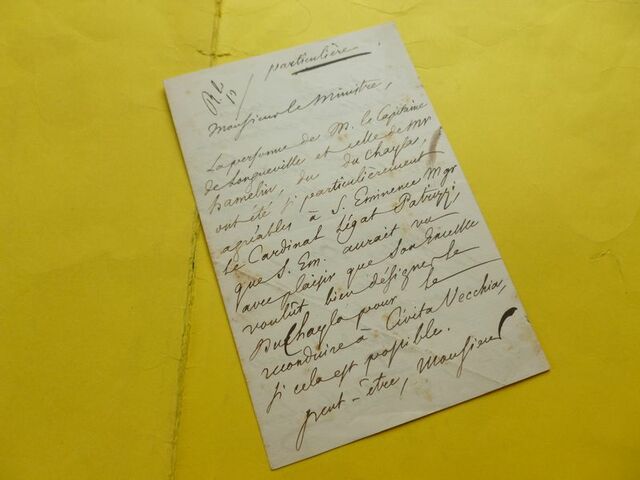 particulière.
Monsieur le Ministre,
La personne de M. le Capitaine
de Longueville et celle de Mr
hamelin, du du Chayla,
ont été si particulièrement
agréables à S. Eminence Mgr
le Cardinal Légat Patrizzi,
que S. Em. aurait vu
avec plaisir que Son Excellce
voulût bien désigner le
DuChayla pour le
reconduire à Civita Vecchia,
si cela est possible.
peut-être, Monsieur